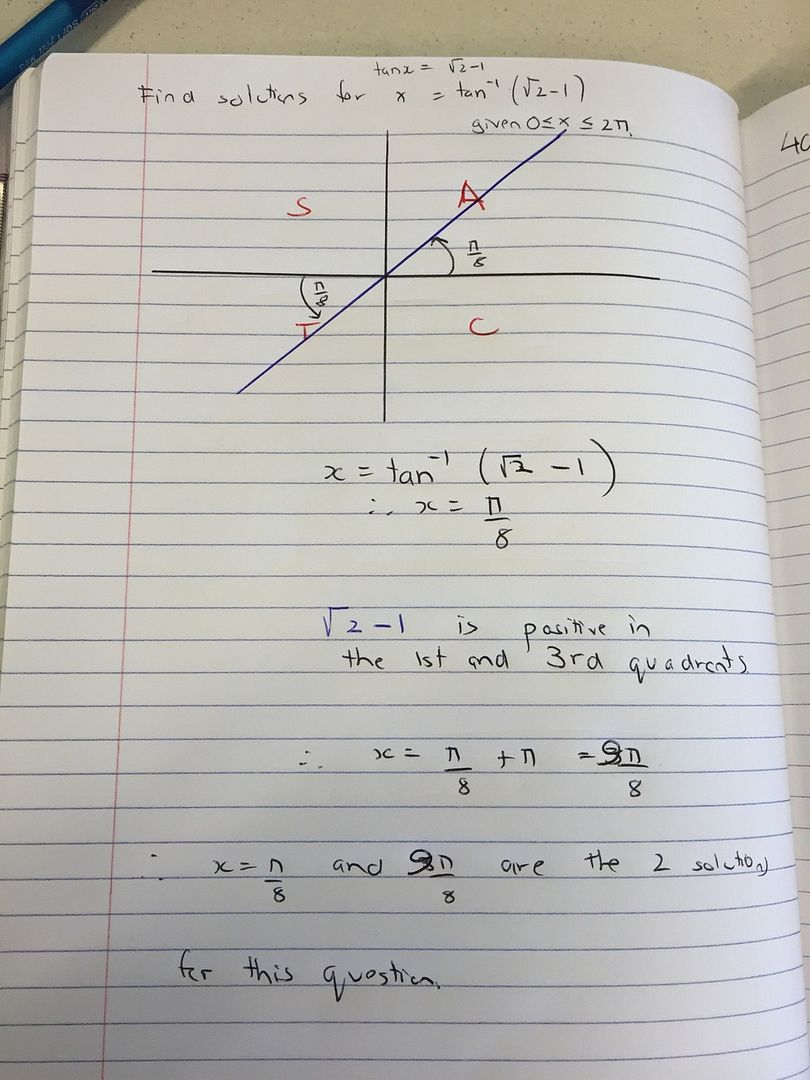 tanx = √2-1
Find solutions for x = tan⁻¹ (√2-1)
given 0≤x ≤ 2π.
S A
π/8
π/8
T C
x = tan⁻¹ (√2 -1)
∴ x = π/8
√2-1 is positive in
the 1st and 3rd quadrants.
∴ x = π/8 + π = 9π/8
∴ x = π/8 and 9π/8 are the 2 solutions
for this question.